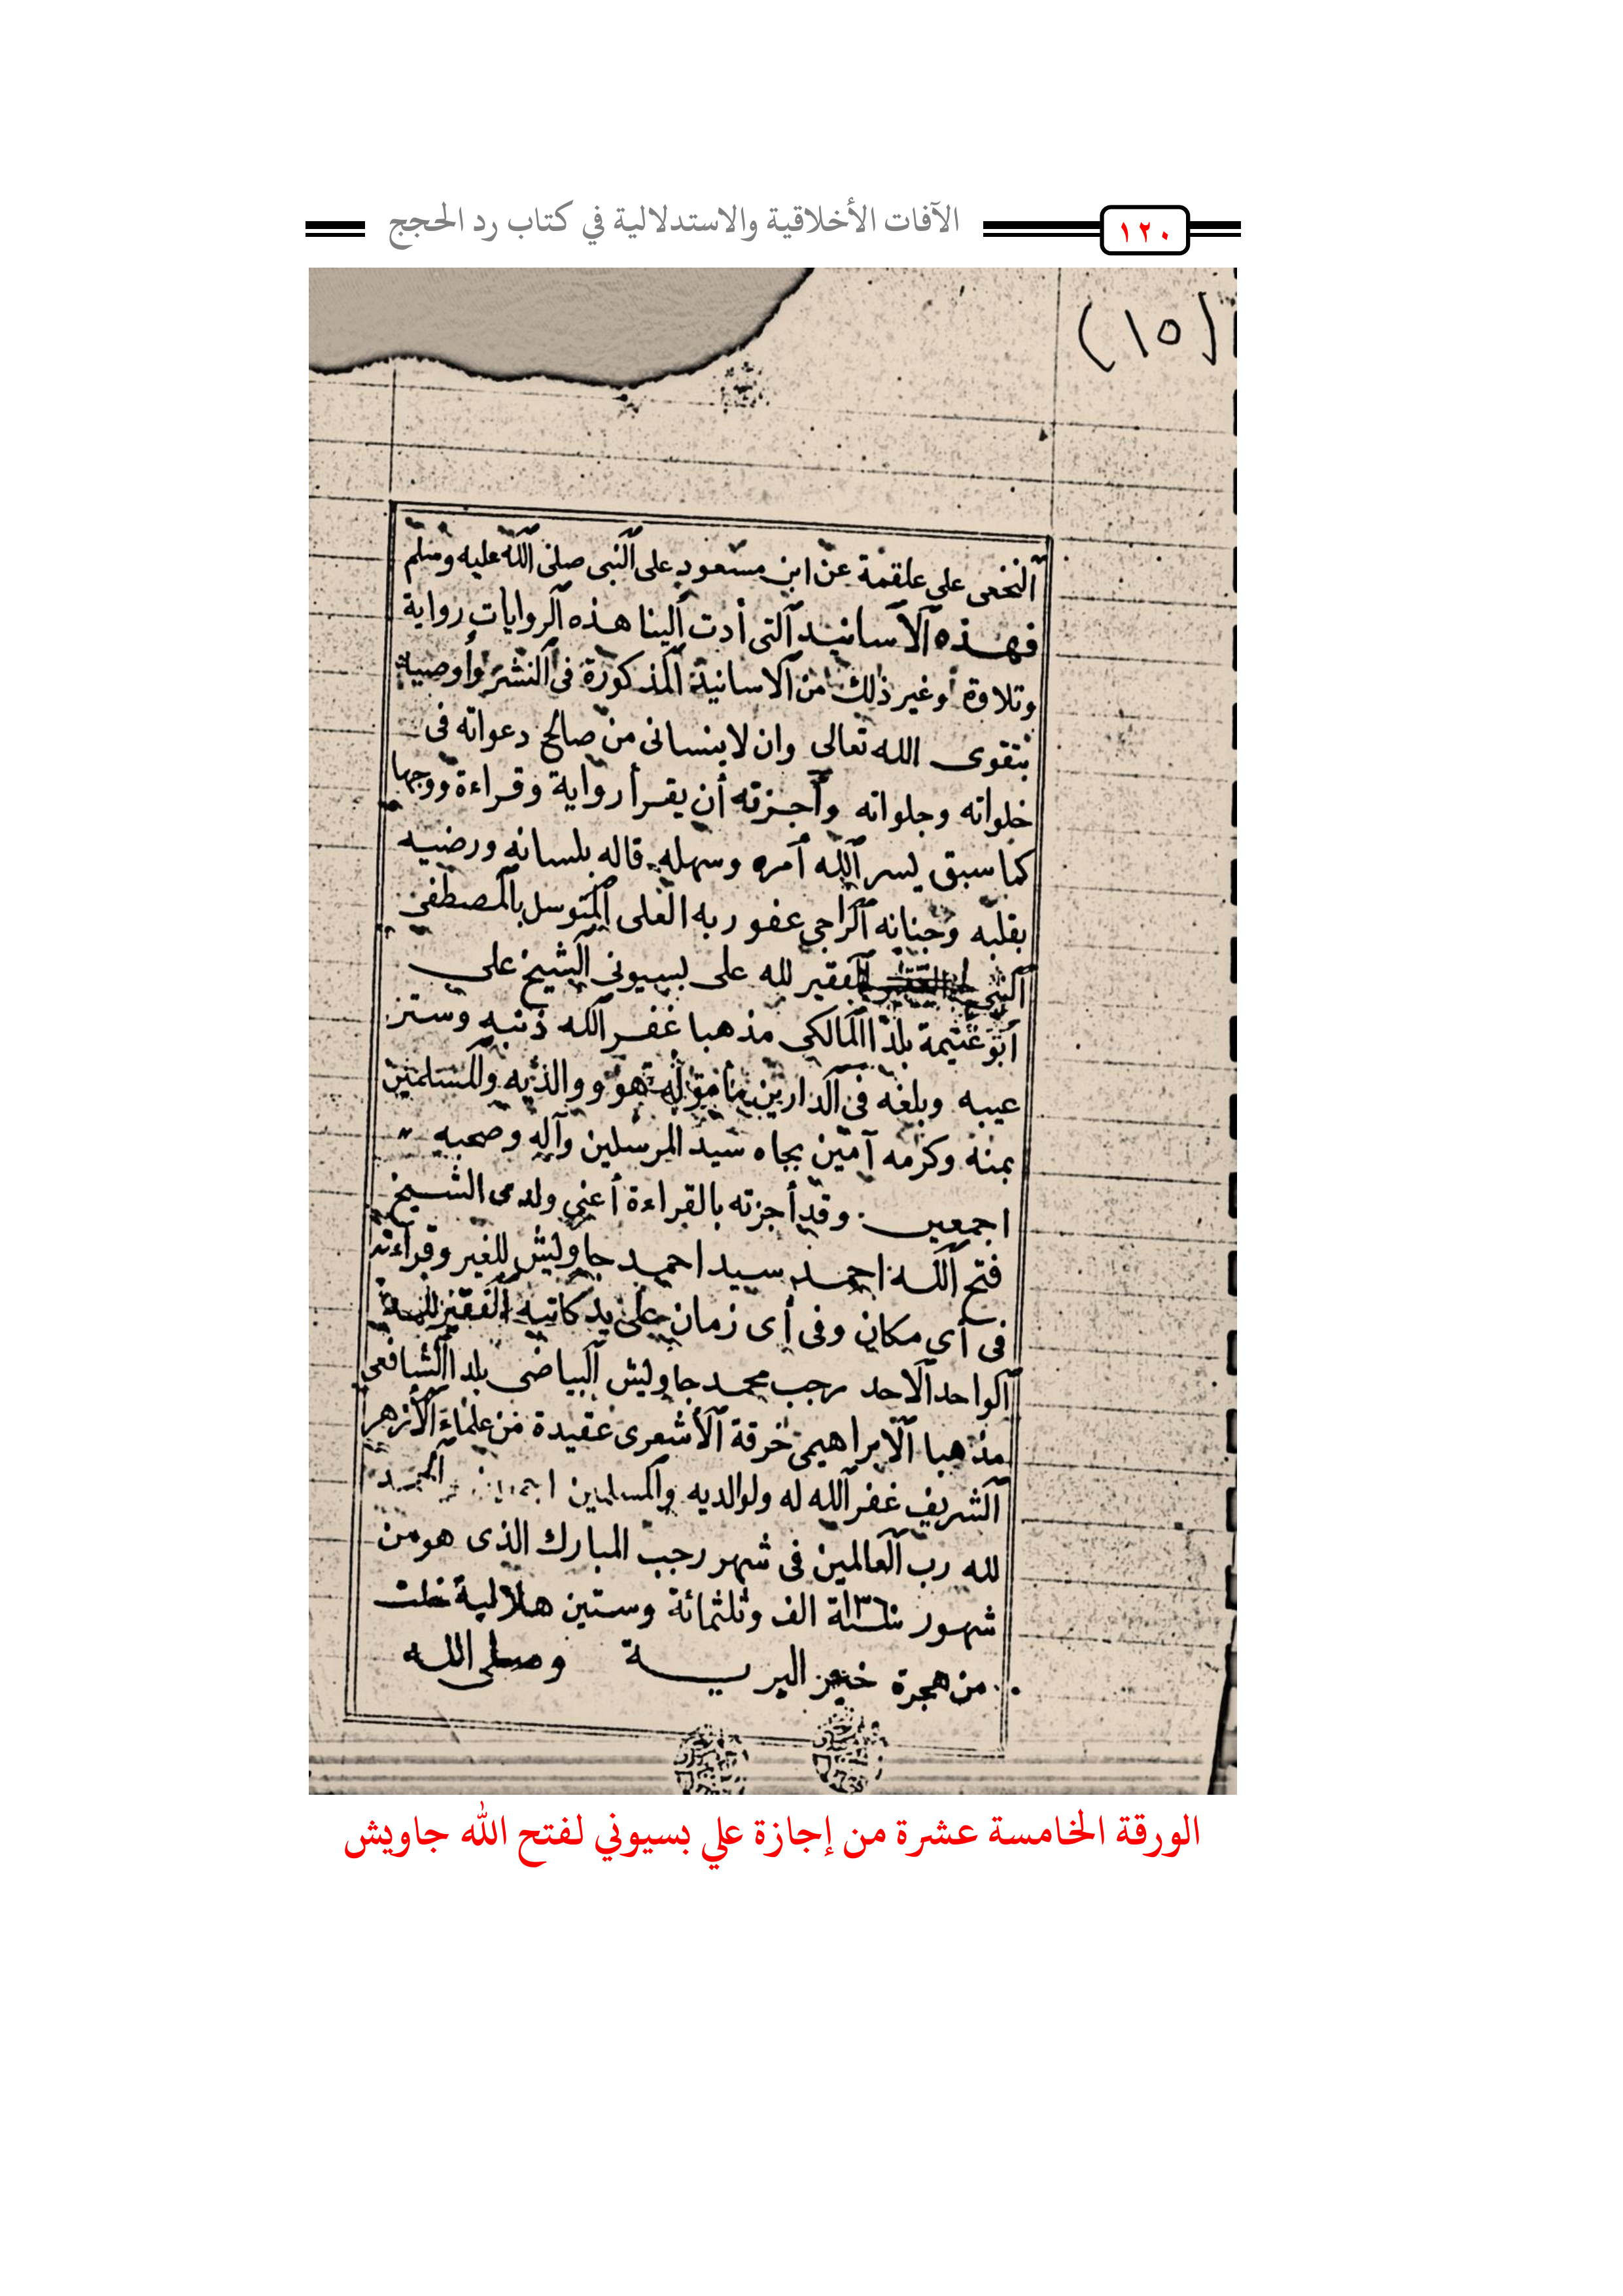 الآفات الأخلاقية والاستدلالية في كتاب رد الحجج
١٢٠
(١٥)
النخعى على علقمة عن ابن مسعود على النبى صلى الله عليه وسلم
فهذه الأسانيد التى أدت إلينا هذه الروايات رواية
وتلاوة وغير ذلك من الاسانيد المذكورة فى النشر وأوصيه
بتقوى الله تعالى وان لا ينسانى من صالح دعواته فى
خلواته وجلواته وأجزته أن يقرأ رواية وقراءة ووجها
كما سبق يسر الله أمره وسهله قاله بلسانه ورضيه
بقلبه وجنانه الراجى عفو ربه العلى المتوسل بالمصطفى
النبى الفقير لله على بسيونى الشيخ على
أبو غنيمة بلدا المالكى مذهبا غفر الله ذنبه وستر
عيبه وبلغه فى الدارين هو ووالديه وللمسلمين
بمنه وكرمه آمين بجاه سيد المرسلين وآله وصحبه
اجمعين وقد أجزته بالقراءة أعنى ولدى الشيخ
فتح الله احمد سيد احمد جاويش للغير وقراءته
فى أى مكان وفى أى زمان على يد كاتبه الفقير
الواحد الأحد رجب محمد جاويش البياضى بلدا الشافعى
مذهبا الابراهيمى خرقة الأشعرى عقيدة من علماء الأزهر
الشريف غفر الله له ولوالديه والمسلمين الحمد
لله رب العالمين فى شهر رجب المبارك الذى هو من
شهور سنة ١٣٦٠ الف وثلثمائة وستين هلالية خلت
من هجرة خير البرية وصلى الله
الورقة الخامسة عشرة من إجازة علي بسيوني لفتح الله جاويش